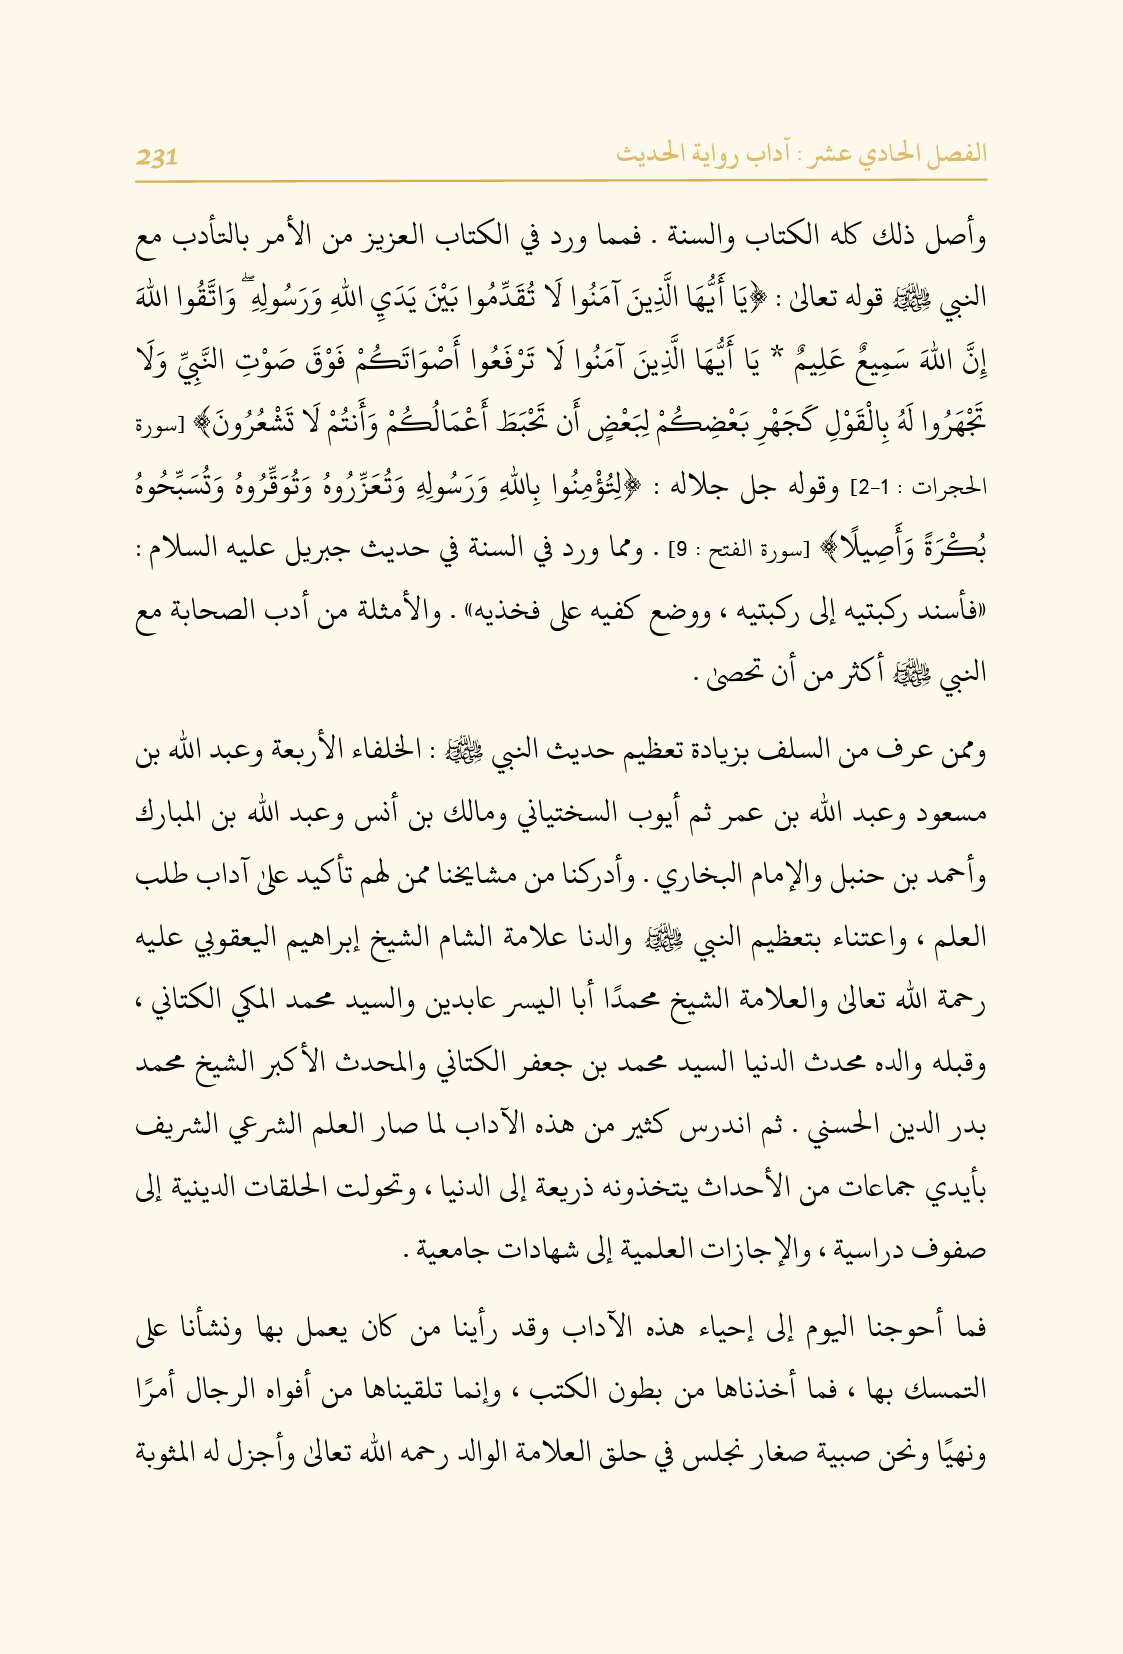 الفصل الحادي عشر : آداب رواية الحديث 231
وأصل ذلك كله الكتاب والسنة . فمما ورد في الكتاب العزيز من الأمر بالتأدب مع
النبي ﷺ قوله تعالىٰ : ﴿يَا أَيُّهَا الَّذِينَ آمَنُوا لَا تُقَدِّمُوا بَيْنَ يَدَيِ اللهِ وَرَسُولِهِ ۖ وَاتَّقُوا اللهَ
إِنَّ اللهَ سَمِيعٌ عَلِيمٌ * يَا أَيُّهَا الَّذِينَ آمَنُوا لَا تَرْفَعُوا أَصْوَاتَكُمْ فَوْقَ صَوْتِ النَّبِيِّ وَلَا
تَجْهَرُوا لَهُ بِالْقَوْلِ كَجَهْرِ بَعْضِكُمْ لِبَعْضٍ أَن تَحْبَطَ أَعْمَالُكُمْ وَأَنتُمْ لَا تَشْعُرُونَ﴾ [سورة
الحجرات : 1-2] وقوله جل جلاله : ﴿لِتُؤْمِنُوا بِاللهِ وَرَسُولِهِ وَتُعَزِّرُوهُ وَتُوَقِّرُوهُ وَتُسَبِّحُوهُ
بُكْرَةً وَأَصِيلًا﴾ [سورة الفتح : 9] . ومما ورد في السنة في حديث جبريل عليه السلام :
«فأسند ركبتيه إلى ركبتيه ، ووضع كفيه على فخذيه» . والأمثلة من أدب الصحابة مع
النبي ﷺ أكثر من أن تحصىٰ .
وممن عرف من السلف بزيادة تعظيم حديث النبي ﷺ : الخلفاء الأربعة وعبد الله بن
مسعود وعبد الله بن عمر ثم أيوب السختياني ومالك بن أنس وعبد الله بن المبارك
وأحمد بن حنبل والإمام البخاري . وأدركنا من مشايخنا ممن لهم تأكيد علىٰ آداب طلب
العلم ، واعتناء بتعظيم النبي ﷺ والدنا علامة الشام الشيخ إبراهيم اليعقوبي عليه
رحمة الله تعالىٰ والعلامة الشيخ محمدًا أبا اليسر عابدين والسيد محمد المكي الكتاني ،
وقبله والده محدث الدنيا السيد محمد بن جعفر الكتاني والمحدث الأكبر الشيخ محمد
بدر الدين الحسني . ثم اندرس كثير من هذه الآداب لما صار العلم الشرعي الشريف
بأيدي جماعات من الأحداث يتخذونه ذريعة إلى الدنيا ، وتحولت الحلقات الدينية إلى
صفوف دراسية ، والإجازات العلمية إلى شهادات جامعية .
فما أحوجنا اليوم إلى إحياء هذه الآداب وقد رأينا من كان يعمل بها ونشأنا على
التمسك بها ، فما أخذناها من بطون الكتب ، وإنما تلقيناها من أفواه الرجال أمرًا
ونهيًا ونحن صبية صغار نجلس في حلق العلامة الوالد رحمه الله تعالىٰ وأجزل له المثوبة